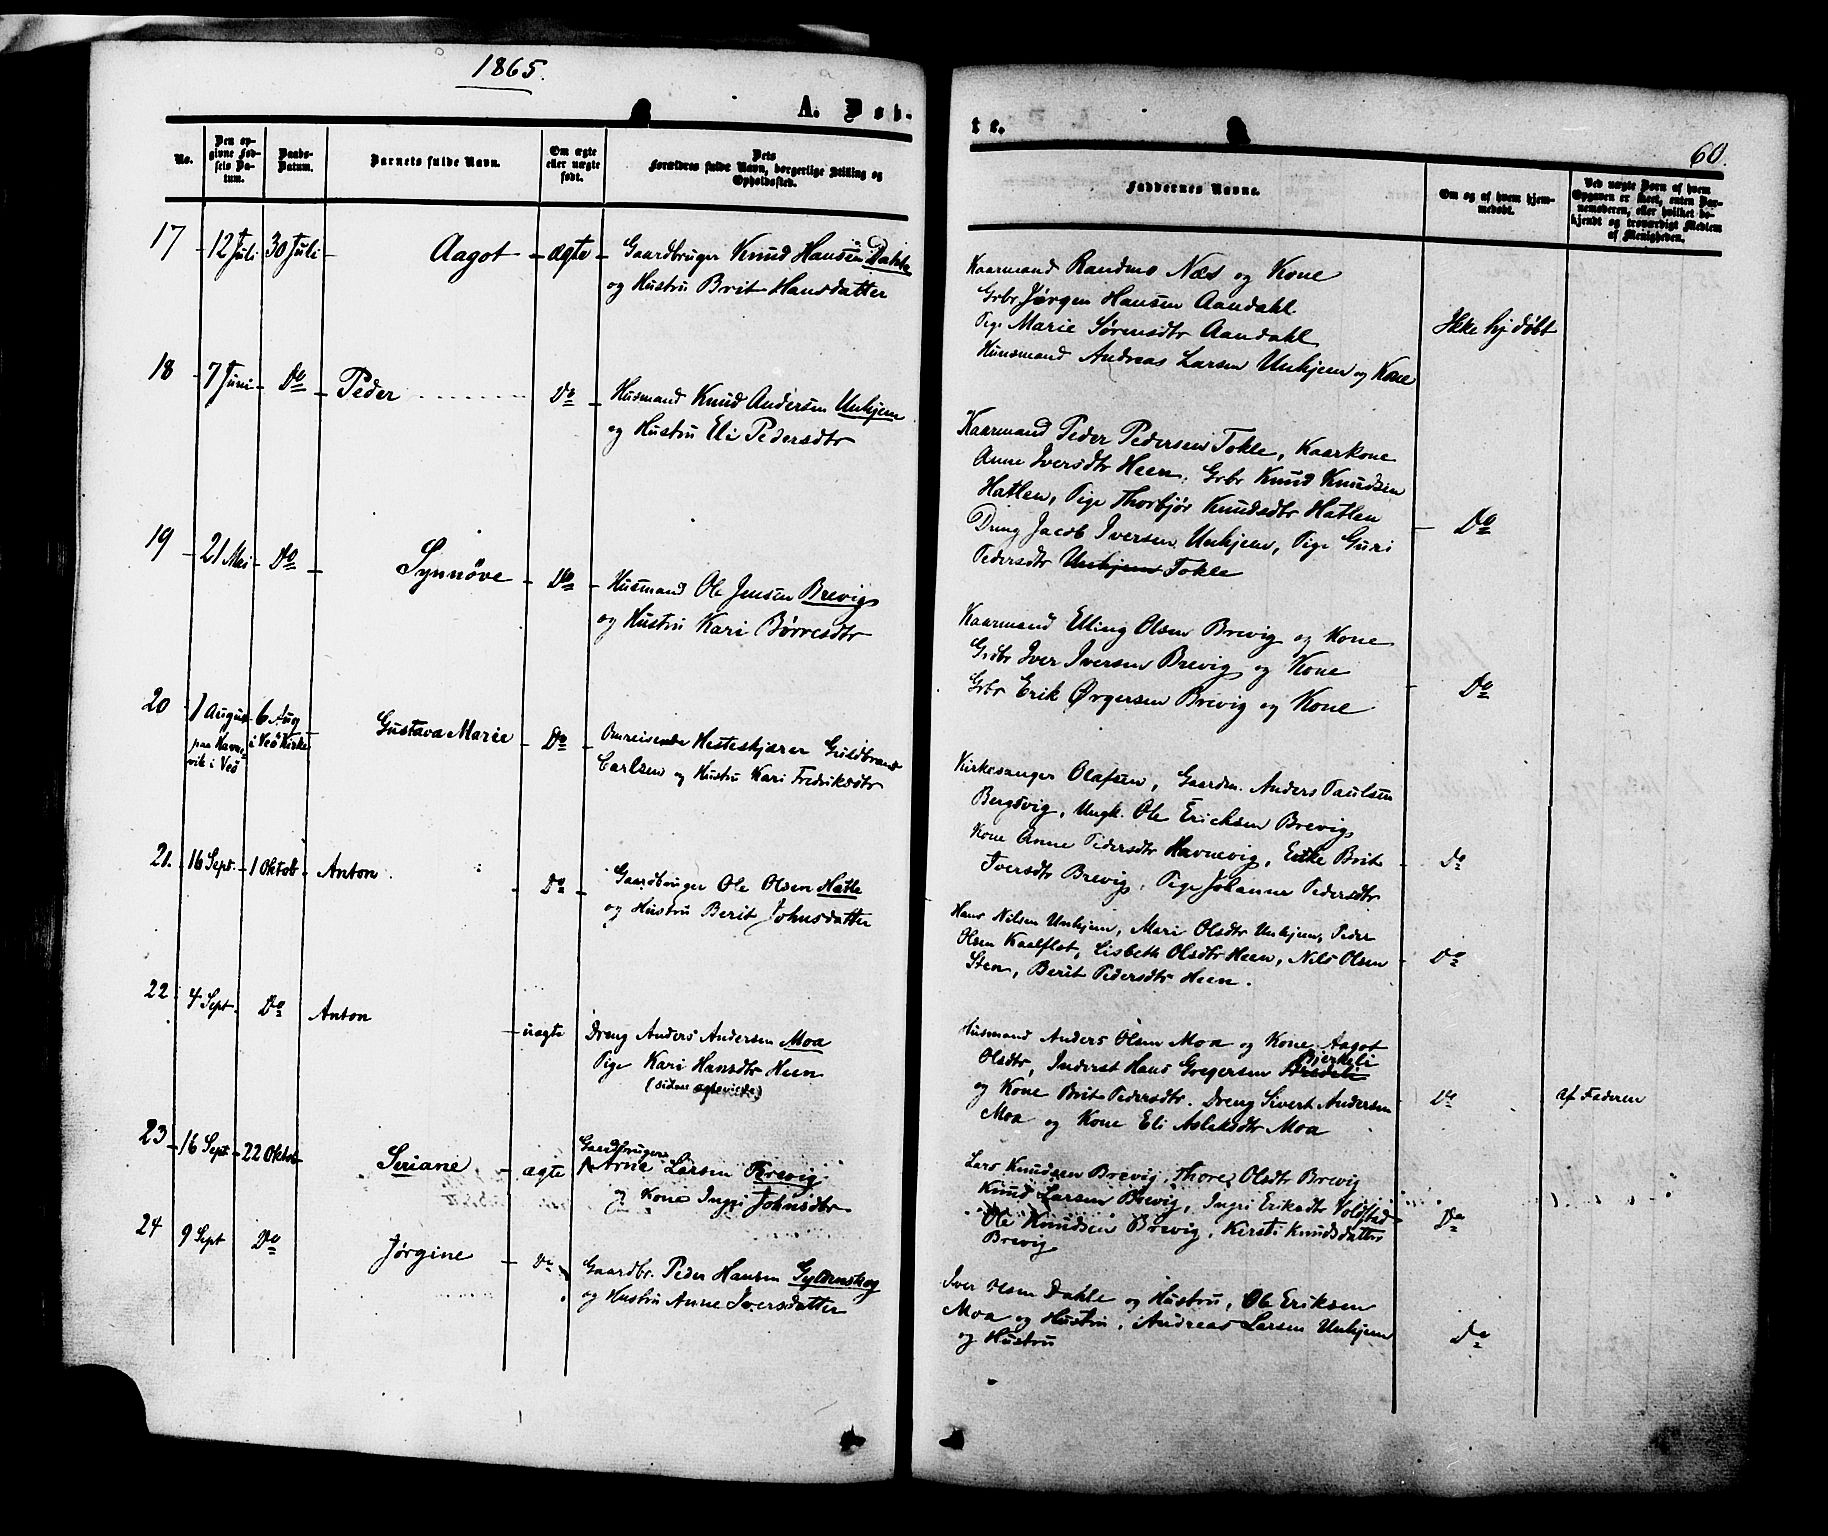 1865.
A. Døb-
No.
Den op-
givne Fød-
sels Da-
tum.
Daabs-
Datum.
Barnets fulde Navn.
Om ægte
eller uægte
født.
Dets
Forældres fulde Navn, borgerlige Stilling og
Opholdssted.
17 12 Juli 30 Juli Aagot ægte Gaardbruger Knud Hansen Dahle
og Hustru Brit Hansdatter
18 7 Juni Do Peder Do Husmand Knud Andersen Unhjem
og Hustru Eli Pedersdtr
19 21 Mai Do Synnøve Do Husmand Ole Jensen Brevig
og Hustru Kari Børresdtr
20 1 August 6 Aug Gustava Marie Do Omreisende Hesteskjærer Guldbrand
paa Havne- i Veø Kirke
vik i Veø
Carlsen og Hustru Kari Fredriksdtr
21. 16 Sept. 1 Oktob Anton Do Gaardbruger Ole Olsen Hatle
og Hustru Berit Johnsdatter
22 4 Sept Do Anton uægte Dreng Anders Andersen Moa
Pige Kari Hansdtr Heen
(siden ægteviede)
23 16 Sept 22 Oktob Seriane ægte Gaardbruger
Arne Larsen Brevig
og Kone Ingri Johnsdtr
24 9 Sept Do Jørgine Do Gaardbr. Peder Hansen Gyldenskog
og Hustru Anne Iversdatter
te.
60.
Faddernes Navne.
Om og af hvem hjem-
medøbt.
Ved uægte Børn af hvem
Opgaven er skeet, enten Bar-
nemoderen, eller hvilket be-
kjendt og troværdigt Medlem
af Menigheden.
Kaarmand Randmo Næs og Kone
Grbr Jørgen Hansen Aandahl
Pige Marie Sørensdtr Aandahl Ikke hj døbt
Husmand Andreas Larsen Unhjem og Kone
Kaarmand Peder Pedersen Tokle, Kaarkone
Anne Iversdtr Heen, Grbr Knud Knudsen
Hatlen, Pige Thorbjør Knudsdtr Hatlen
Dreng Jacob Iversen Unhjem, Pige Guri Do
Pedersdtr Unhjem Tokle
Kaarmand Elling Olsen Brevig og Kone
Grdbr Iver Iversen Brevig og Kone
Grbr Erik Ørgersen Brevig og Kone Do
Kirkesanger Olafsen, Gaardm. Anders Paulsen
Bergsvig, Ungk. Ole Ericksen Brevig
Kone Anne Pedersdtr Havnevig, Enke Brit Do
Iversdtr Brevig, Pige Johanne Pedersdtr
Hans Nilsen Unhjem, Mari Olsdtr Unhjem, Peder
Olsen Kaalflot, Lisbeth Olsdtr Heen, Nils Olsen Do
Sten, Berit Pedersdtr Heen.
Husmand Anders Olsen Moa og Kone Aagot
Olsdtr, Inderst Hans Gregersen Bjerkeli
og Kone Brit Pedersdtr. Dreng Sivert Andersen Do af Faderen
Moa og Kone Eli Aslaksdtr Moa
Lars Knudsen Brevig, Thore Olsdtr Brevig
Knud Larsen Brevig, Ingri Eriksdtr Voldstad
Ole Knudsen Brevig, Kersti Knudsdatter Do
Brevig
Iver Olsen Dahle og Hustru, Ole Eriksen
Moa og Hustru, Andreas Larsen Unhjem Do
og Hustru